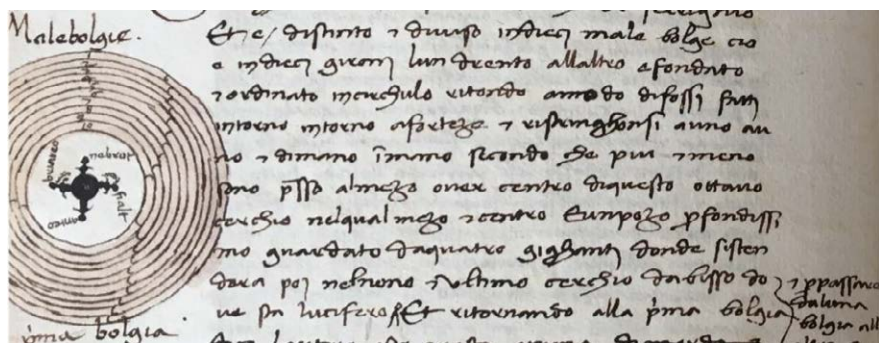 Malebolgie.
Et e, distinto ⁊ diviso indieci male bolge cio
e indieci gironi lun drento allaltro efondato
⁊ordinato incirchulo ritondo amodo difossi fatti
intorno intorno aforteze ⁊ ristringhonsi auno au
no ⁊ dimano īmano secondo che piu ⁊meno
sono pṡso almezo over centro diquesto ottavo
cerchio nelqual mezo ⁊centro Eunpozo ꝑfondissi
mo guardato daquatro gighanti donde sisten
dara poi nelnono ⁊ultimo cerchio dabisso do
ve sta lucifero Et ritornando alla p̄ma bolgia
⁊ ꝑpassare
da luna
bolgia all
nabrot
fialt
anteo
p̄ma bolgia.